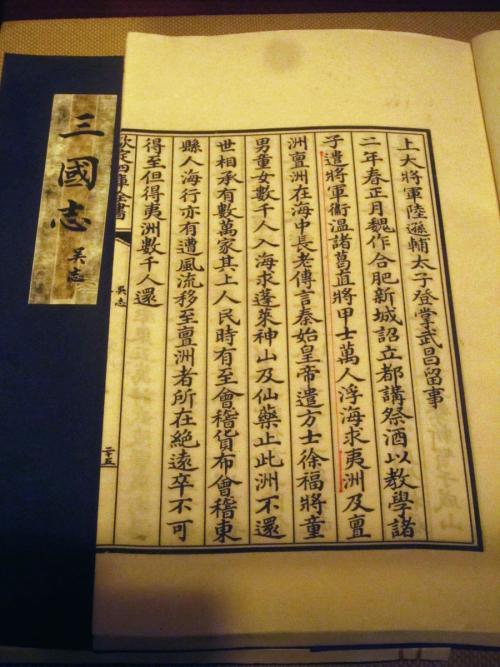 上大將軍陸遜輔太子登掌武昌留事
二年春正月魏作合肥新城詔立都講祭酒以教學諸
子遣將軍衞溫諸葛直將甲士萬人浮海求夷洲及亶
洲亶洲在海中長老傳言秦始皇帝遣方士徐福將童
男童女數千人入海求蓬萊神山及仙藥止此洲不還
世相承有數萬家其上人民時有至會稽貨布會稽東
縣人海行亦有遭風流移至亶洲者所在絶遠卒不可
得至但得夷洲數千人還
欽定四庫全書
吳志
二十五
三國志
吳志